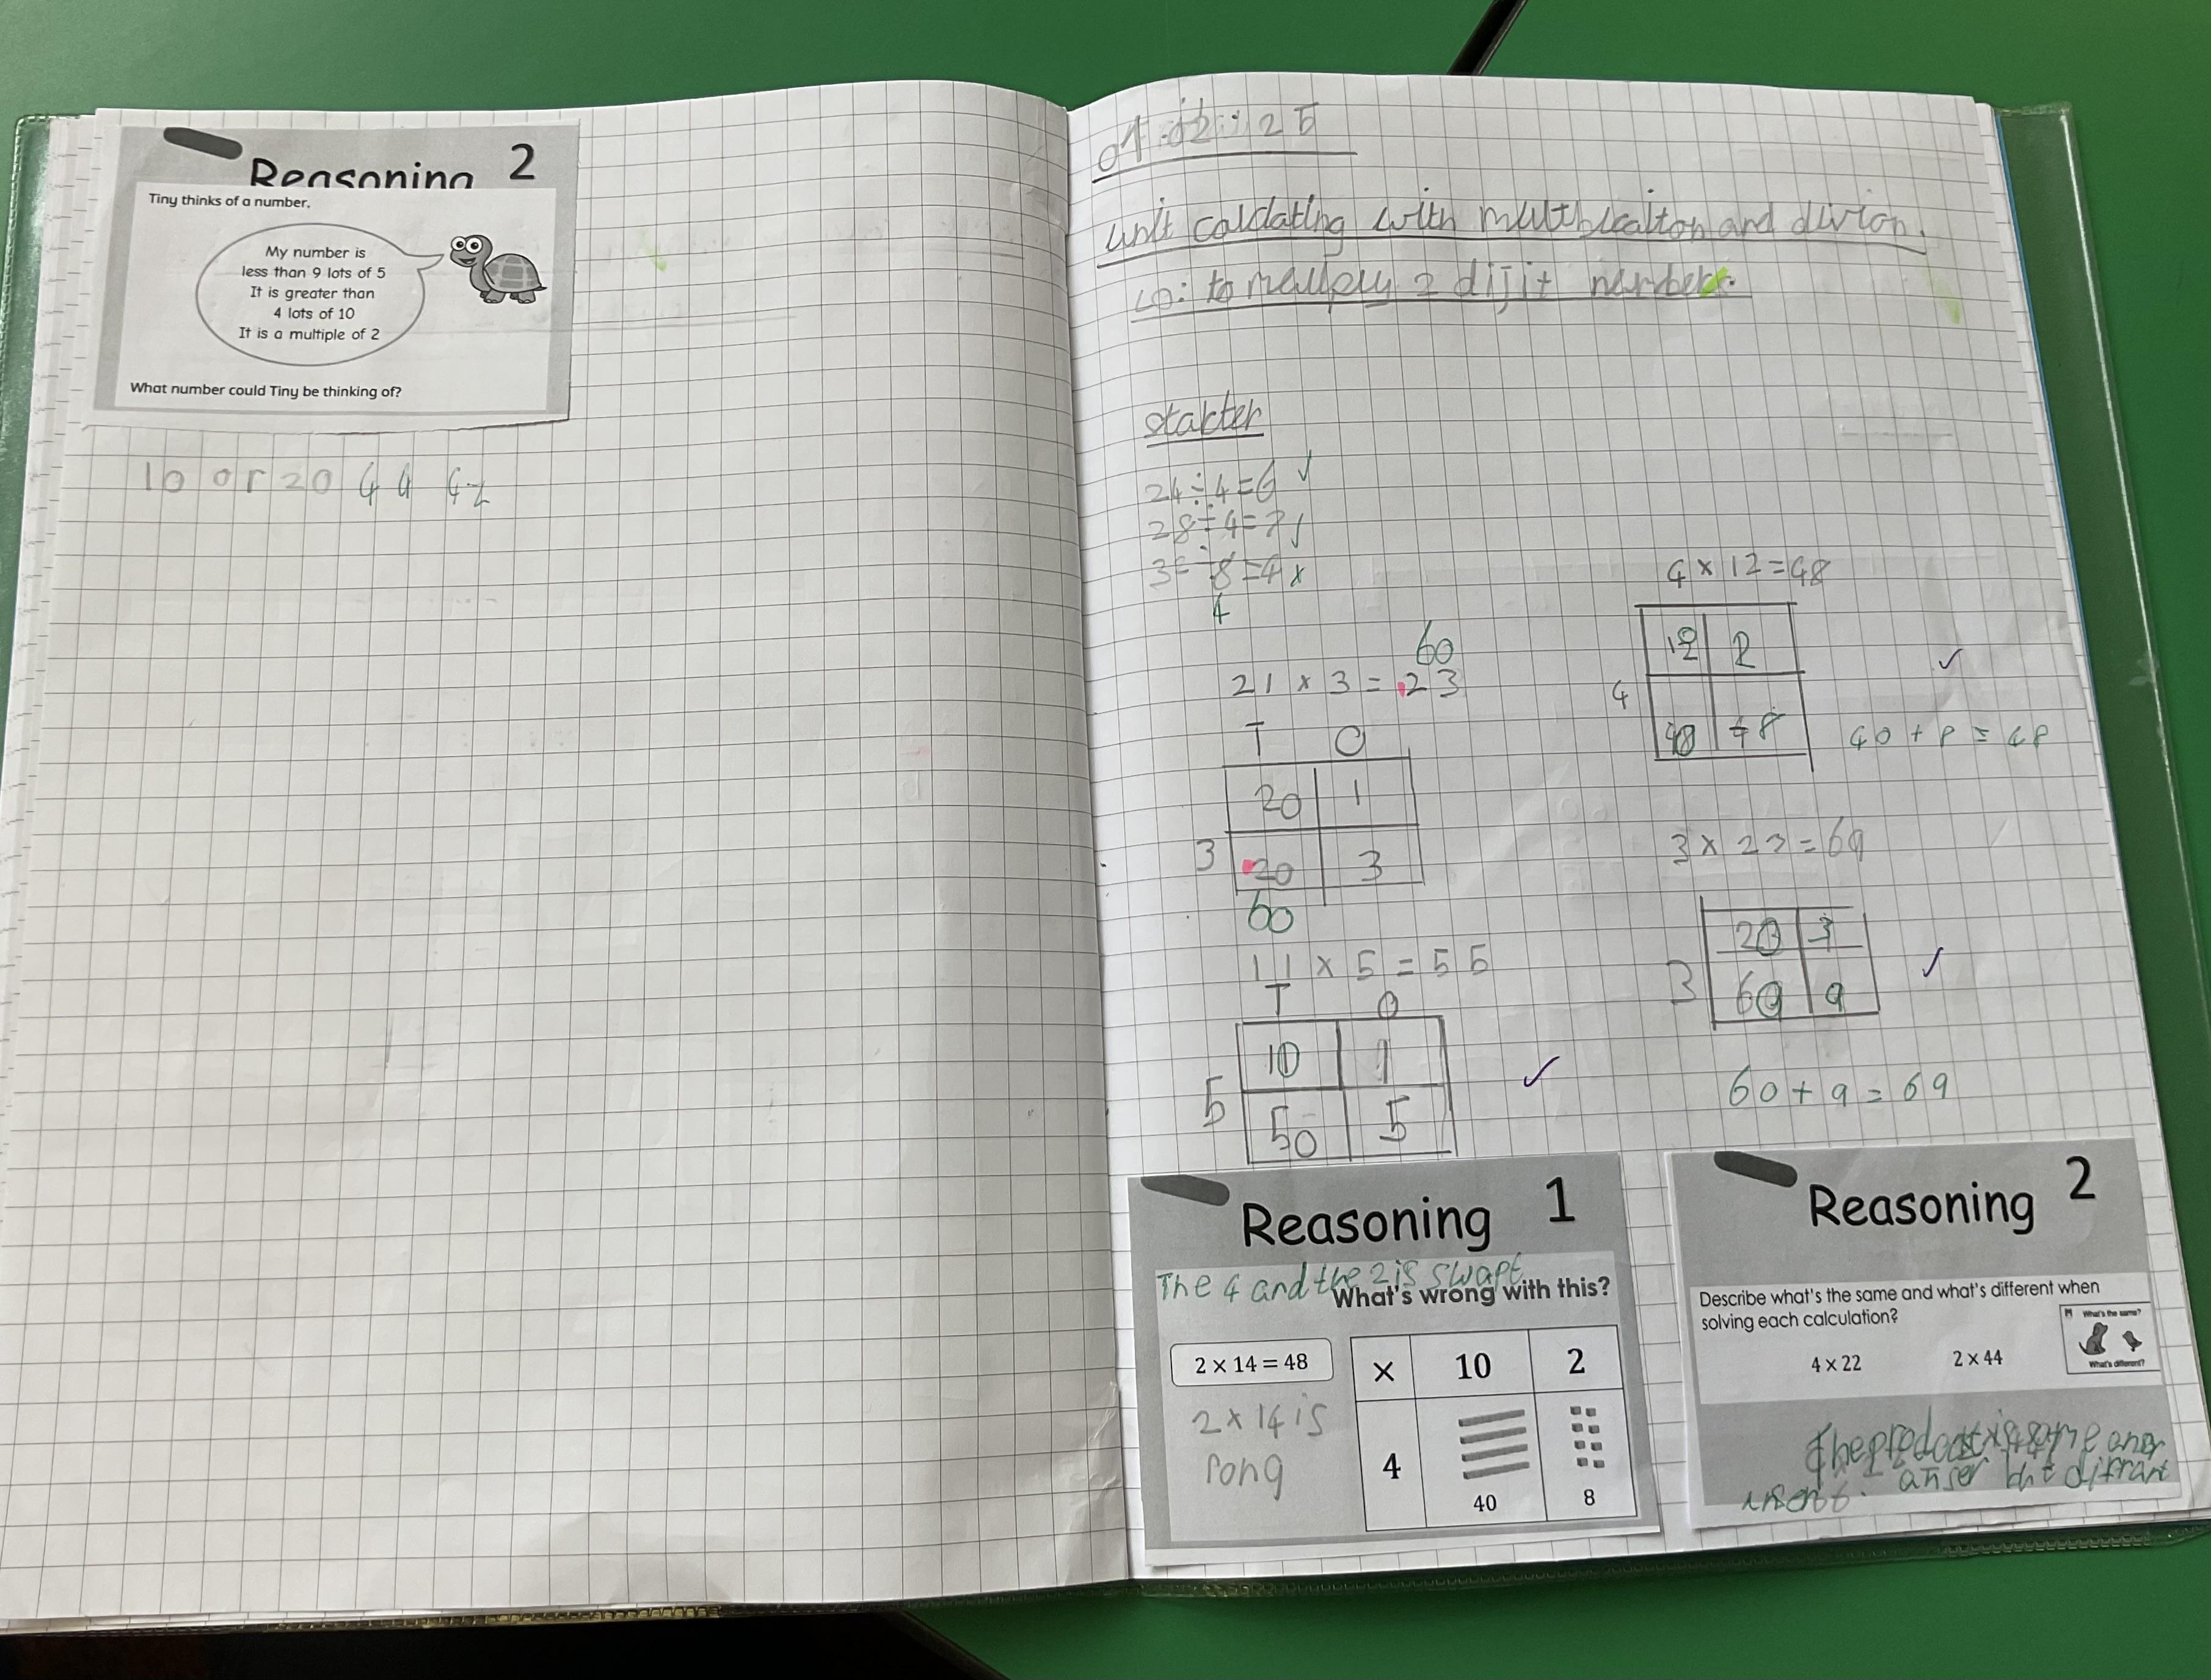 Reasoning 2
Tiny thinks of a number.
My number is
less than 9 lots of 5
It is greater than
4 lots of 10
It is a multiple of 2
What number could Tiny be thinking of?
10 or 20 44 42
25
unit caldating with and divion.
LO: to 2 dijit
starter
24÷4=6 ✓
28÷4=7 ✓
÷8=4 x
4
60
21 x 3 = 23
T O
20 1
3 20 3
60
11 x 5 = 55
T O
10 1
5 50 5
4 x 12 = 48
2
4
40 + 8 = 48
3 x 23 = 69
20 3
3 60 9
60 + 9 = 69
Reasoning 1
The 4 and the 2 is swapt
What's wrong with this?
2 × 14 = 48
2 x 14 is
rong
× 10 2
4
40 8
Reasoning 2
Describe what's the same and what's different when
solving each calculation?
What's the same?
4 x 22 2 x 44
What's different?
anser but